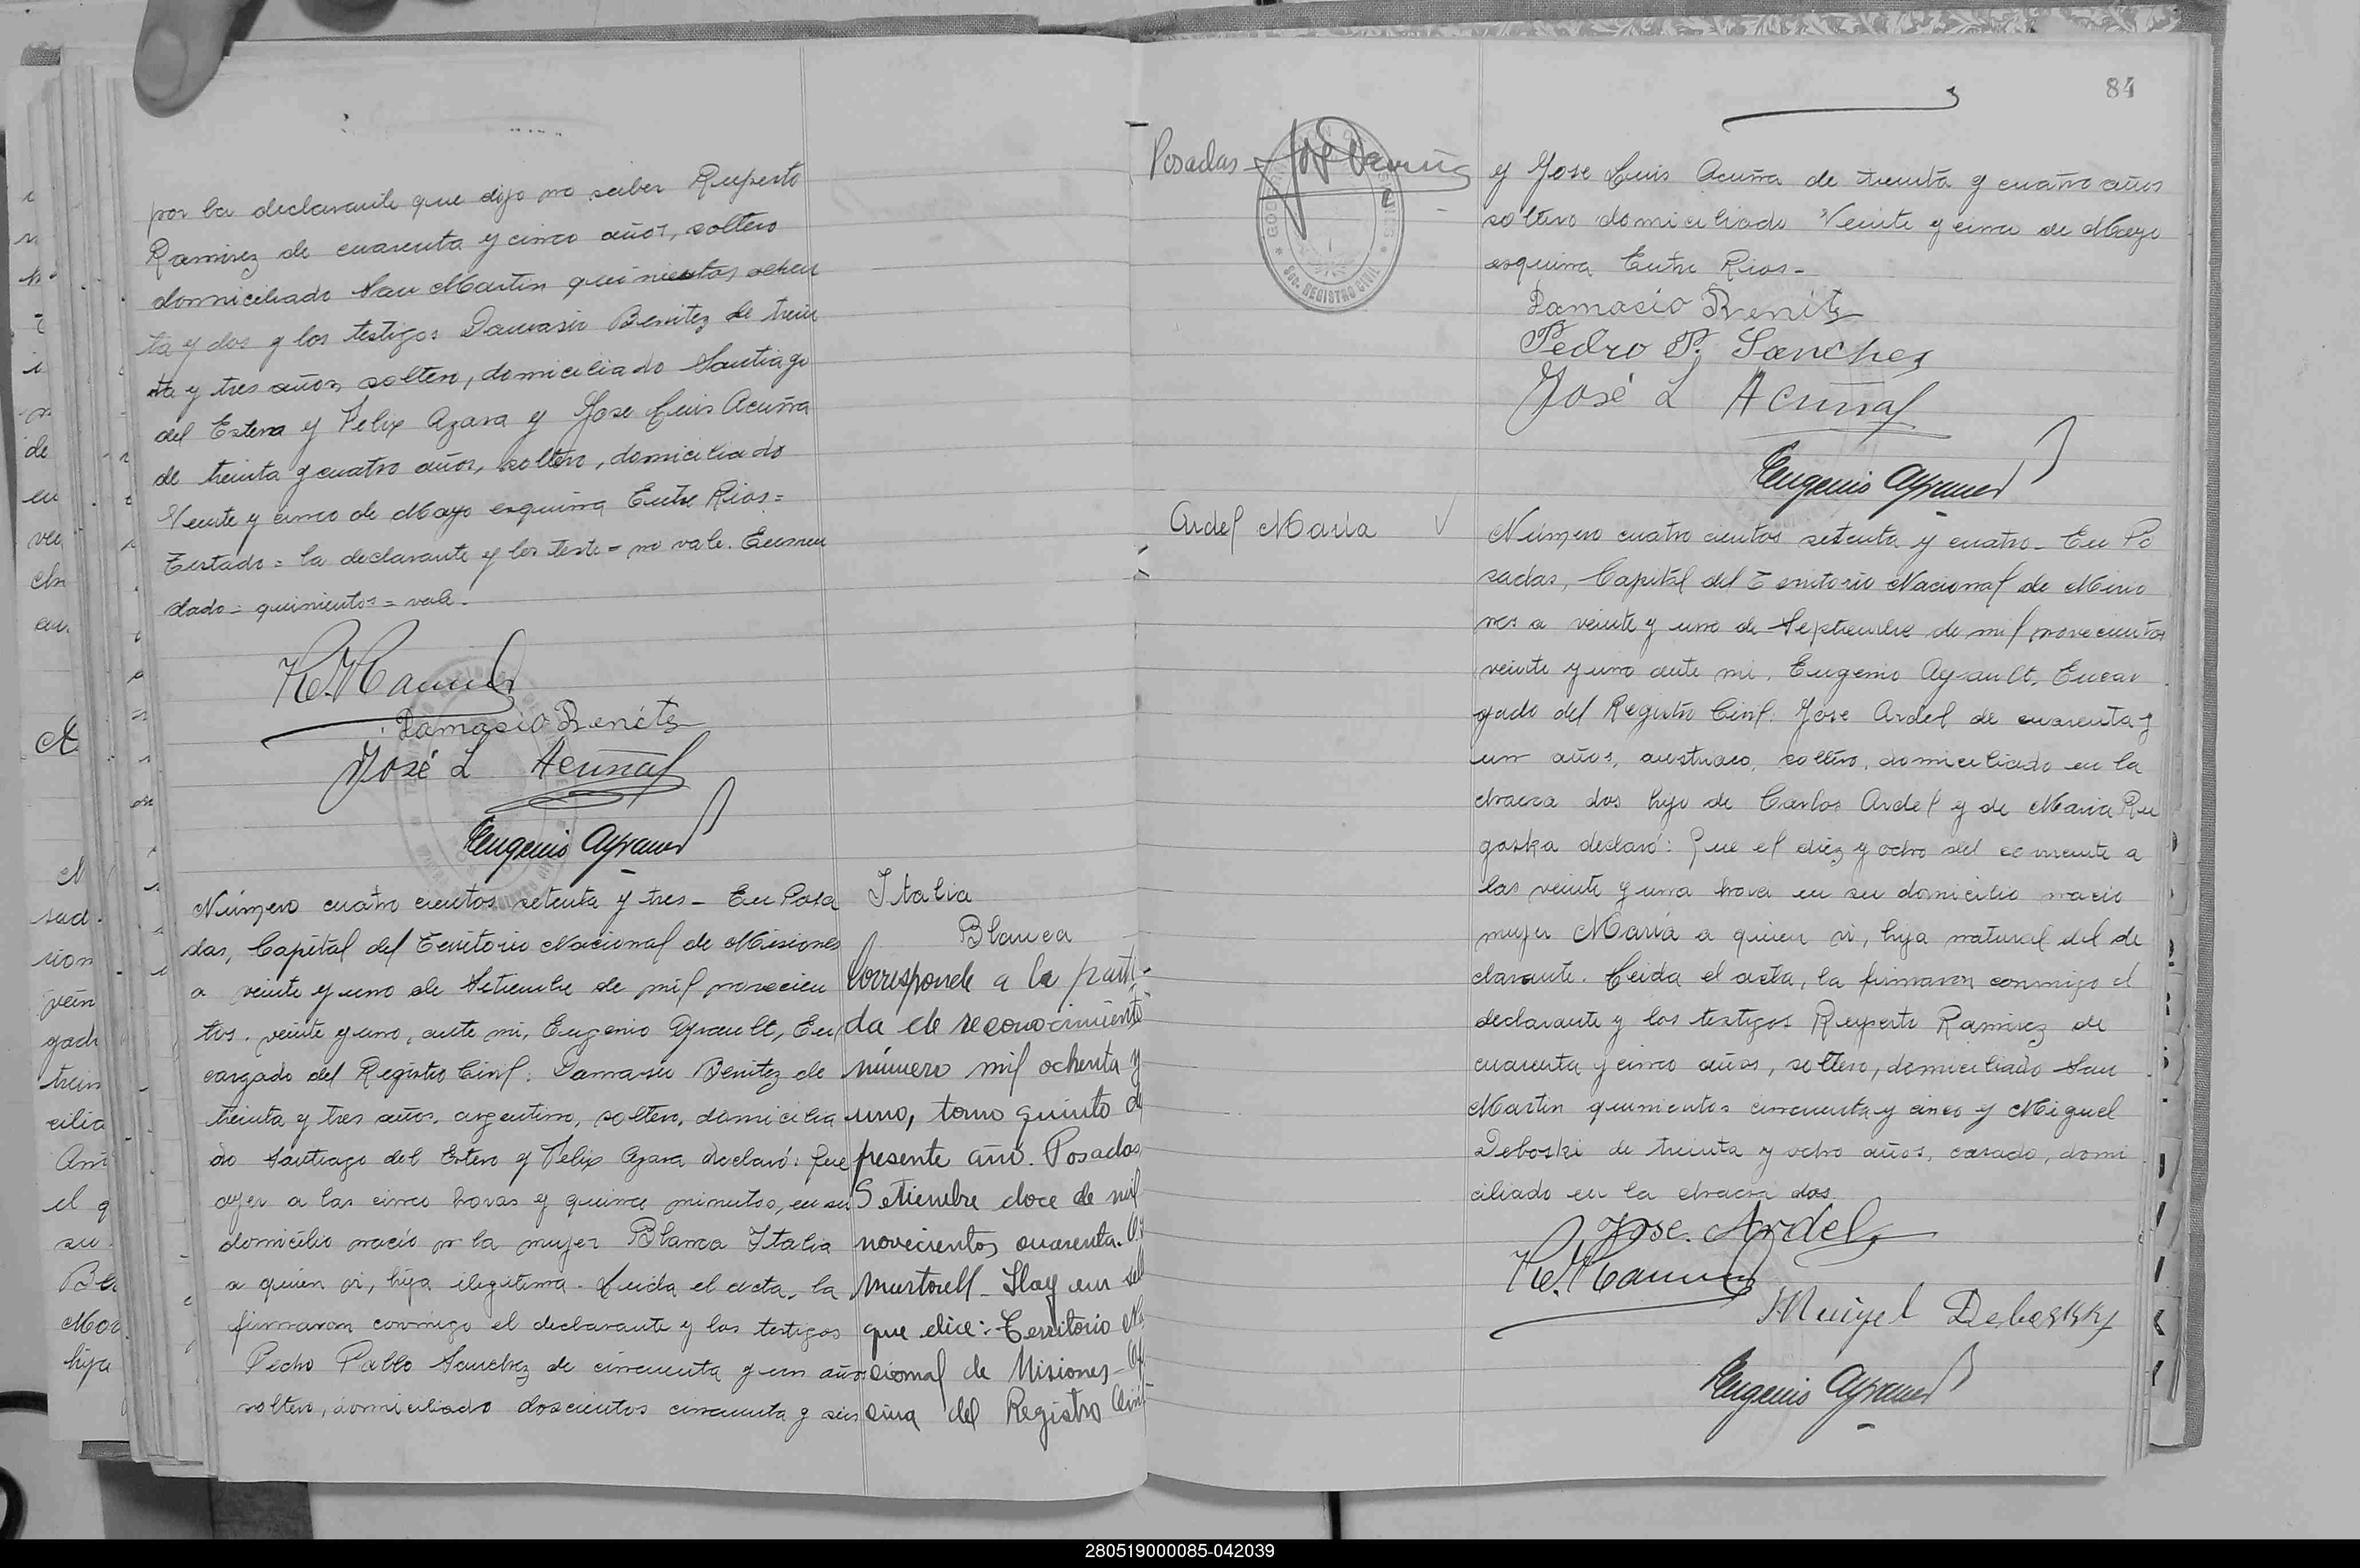 por la declarante que dijo no saber Ruperto
Ramirez de cuarenta y cinco años, soltero
domiciliado San Martin quinientos ochen
ta y dos y los testigos Damasio Benitez de trein
ta y tres años soltero, domiciliado Santiago
del Estero y Felix Azara y Jose Luis Acuña
de treinta y cuatro años, soltero, domiciliado
Veinte y cinco de Mayo esquina Entre Rios=
Testado= la declarante y los test= no vale. Enmen
dado= quinientos= vale.
Damasio Benitez
José L Acuña
Número cuatro cientos setenta y tres- En Posa
das, Capital del Territorio Nacional de Misiones
a veinte y uno de Setiembre de mil novecien
tos. veinte y uno, ante mi, Eugenio Ayrault, En
cargado del Registro Civil: Damasio Benitez de
treinta y tres años, argentino, soltero, domicilia
do Santiago del Estero y Felix Azara declaró: Que
ayer a las cinco horas y quince minutos, en su
domicilio nació la mujer Blanca Italia
a quien vi, hija ilegitima. Leida el acta, la
firmaron conmigo el declarante y los testigos
Pedro Pablo Sanchez de cincuenta y un años
soltero, domiciliado doscientos cincuenta y seis
Italia
Blanca
Corresponde a la parti-
da de reconocimiento
número mil ochenta y
uno, tomo quinto del
presente año. Posadas,
Setiembre doce de mil
novecientos cuarenta.
Martorell- Hay un sell
que dice:- Territorio Na
cional de Misiones- Ofi
cina del Registro Civil-
84
Posadas
GOBERNACION DE MISIONES
Sec. REGISTRO CIVIL
y Jose Luis Acuña de treinta y cuatro años
soltero domiciliado Veinte y cinco de Mayo
esquina Entre Rios-
Damasio Benitez
Pedro P. Sanchez
José L Acuña
Eugenio Ayrault
Ardel Maria
Número cuatro cientos setenta y cuatro- En Po
sadas, Capital del Territorio Nacional de Misio
nes a veinte y uno de Septiembre de mil novecientos
veinte y uno ante mi, Eugenio Ayrault, Encar
gado del Registro Civil: Jose Ardel de cuarenta y
un años, austriaco, soltero, domiciliado en la
chacra dos hijo de Carlos Ardel y de Maria Ru
gaska declaró: Que el diez y ocho del corriente a
las veinte y una hora en su domicilio nació
mujer Maria a quien vi, hija natural del de
clarante. Leida el acta, la firmaron conmigo el
declarante y los testigos Ruperto Ramirez de
cuarenta y cinco años, soltero, domiciliado San
Martin quinientos cincuenta y cinco y Miguel
Deboski de treinta y ocho años, casado, domi
ciliado en la chacra dos.
Jose. Ardel
Miguel Deboskky
Eugenio Ayrault
280519000085-042039